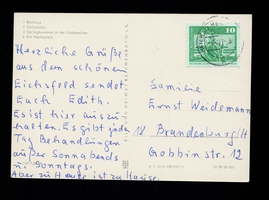 1 Rathaus
Herzliche Grüße
aus dem schönen
Eichsfeld sendet
Euch Edith.
Es ist hier auszu-
halten. Es gibt jeden
Tag Behandlungen
außer Sonnabends
u. Sonntags.
Aber zu Hause ist zu Hause.
10
Familie
Ernst Weidemann
18 Brandenburg/H
Gobbinstr. 12